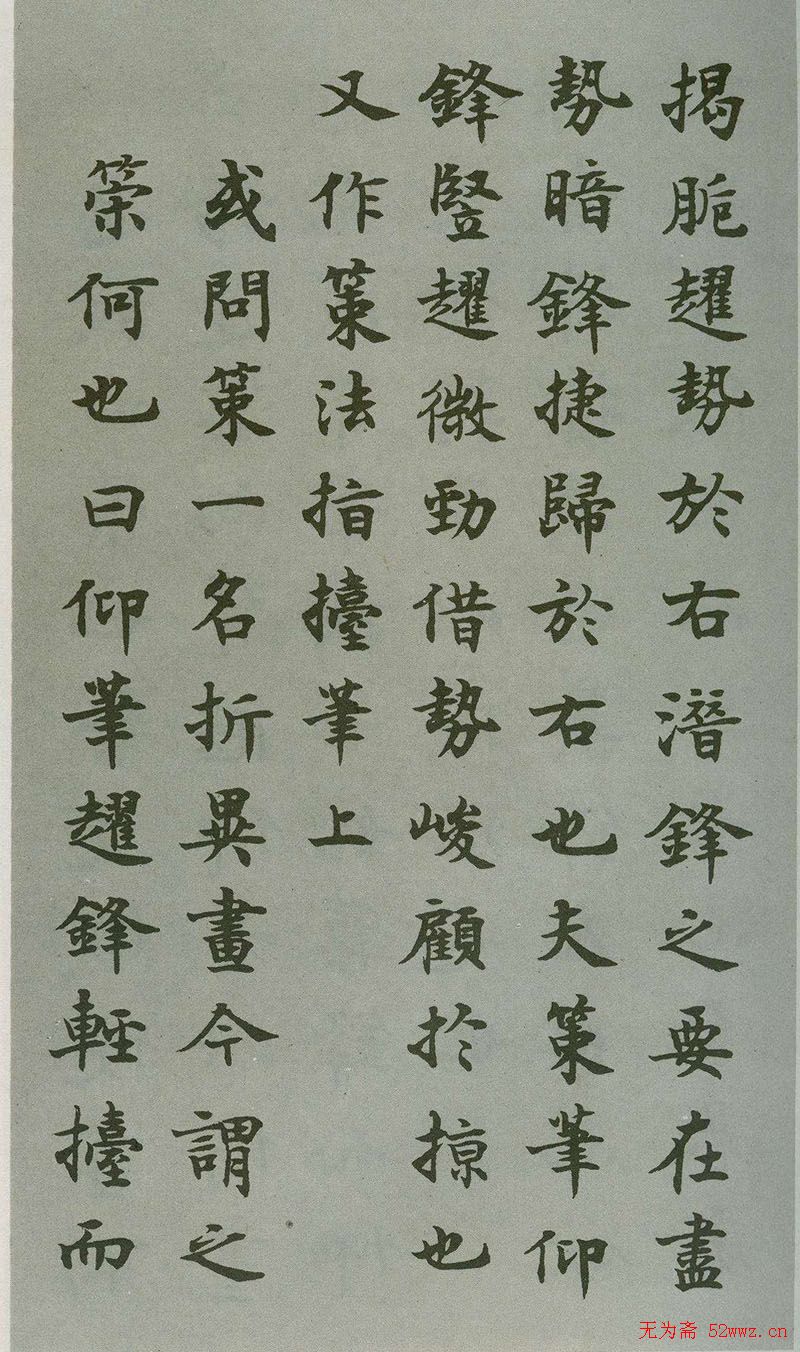 揭腕趯勢於右潛鋒之要在盡
勢暗鋒捷歸於右也夫策筆仰
鋒豎趯微勁借勢峻顧於掠也
又作策法指擡筆上
或問策一名折異畫今謂之
策何也曰仰筆趯鋒輕擡而
无为斋 52wwz.cn